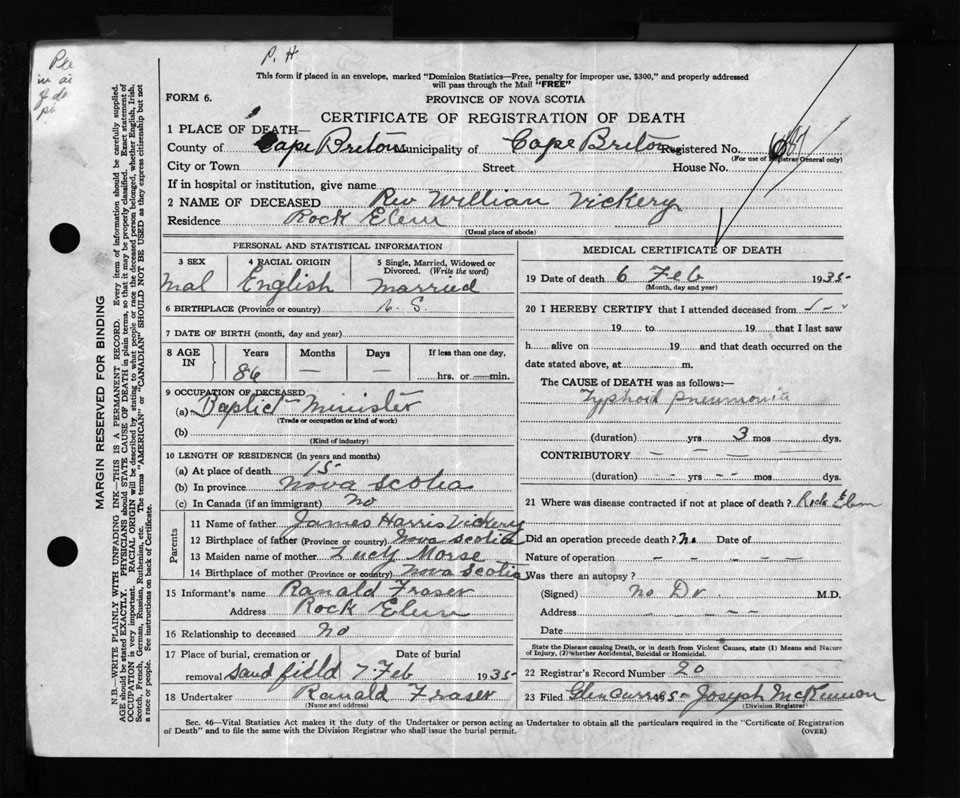 P. H
This form if placed in an envelope, marked "Dominion Statistics—Free, penalty for improper use, $300," and properly addressed
will pass through the Mail "FREE"
FORM 6.
PROVINCE OF NOVA SCOTIA
CERTIFICATE OF REGISTRATION OF DEATH
1 PLACE OF DEATH—
County of Cape Breton Municipality of Cape Breton Registered No.
(For use of Registrar General only)
City or Town Street House No.
If in hospital or institution, give name
2 NAME OF DECEASED Rev Willian Vickery
Residence Rock Elem
(Usual place of abode)
PERSONAL AND STATISTICAL INFORMATION
3 SEX 4 RACIAL ORIGIN 5 Single, Married, Widowed or Divorced. (Write the word)
Mal English Married
6 BIRTHPLACE (Province or country) N. S.
7 DATE OF BIRTH (month, day and year)
8 AGE IN Years Months Days If less than one day,
86 — — hrs. or —min.
9 OCCUPATION OF DECEASED
(a) Baptict Minister
(Trade or occupation or kind of work)
(b)
(Kind of industry)
10 LENGTH OF RESIDENCE (in years and months)
(a) At place of death 15
(b) In province Nova Scotia
(c) In Canada (if an immigrant) no
Parents
11 Name of father James Harris Vickery
12 Birthplace of father (Province or country) Nova Scotia
13 Maiden name of mother Lucy Morse
14 Birthplace of mother (Province or country) Nova Scotia
15 Informant's name Ranald Fraser
Address Rock Elem
16 Relationship to deceased no
17 Place of burial, cremation or Date of burial
removal Sandfield 7 Feb 1935
18 Undertaker Ranald Fraser
(Name and address)
MEDICAL CERTIFICATE OF DEATH
19 Date of death 6 Feb 1935
(Month, day and year)
20 I HEREBY CERTIFY that I attended deceased from
19 to 19 that I last saw
h alive on 19 and that death occurred on the
date stated above, at m.
The CAUSE of DEATH was as follows:—
Typhoid Pneumonia
(duration) yrs 3 mos dys.
CONTRIBUTORY — — — —
(duration) -- yrs -- mos dys.
21 Where was disease contracted if not at place of death? Rock Elem
Did an operation precede death? No Date of
Nature of operation — — — — —
Was there an autopsy?
(Signed) no Dr. M.D.
Address - - -
Date
State the Disease causing Death, or in death from Violent Causes, state (1) Means and Nature
of Injury, (2) whether Accidental, Suicidal or Homicidal.
22 Registrar's Record Number 20
23 Filed Joseph McKinnon
(Division Registrar)
Sec. 46—Vital Statistics Act makes it the duty of the Undertaker or person acting as Undertaker to obtain all the particulars required in the "Certificate of Registration
of Death" and to file the same with the Division Registrar who shall issue the burial permit.
(OVER)
MARGIN RESERVED FOR BINDING
N.B.—WRITE PLAINLY WITH UNFADING INK—THIS IS A PERMANENT RECORD. Every item of information should be carefully supplied.
AGE should be stated EXACTLY. PHYSICIANS should STATE CAUSE OF DEATH in plain terms, so that it may be properly classified. Exact statement of
OCCUPATION is very important. RACIAL ORIGIN will be described by stating to what people or race the deceased person belonged, whether English, Irish,
Scotch, French, German, Russian, Ruthenian, etc. The terms "AMERICAN" or "CANADIAN" SHOULD NOT BE USED as they express citizenship but not
a race or people. See instructions on back of Certificate.